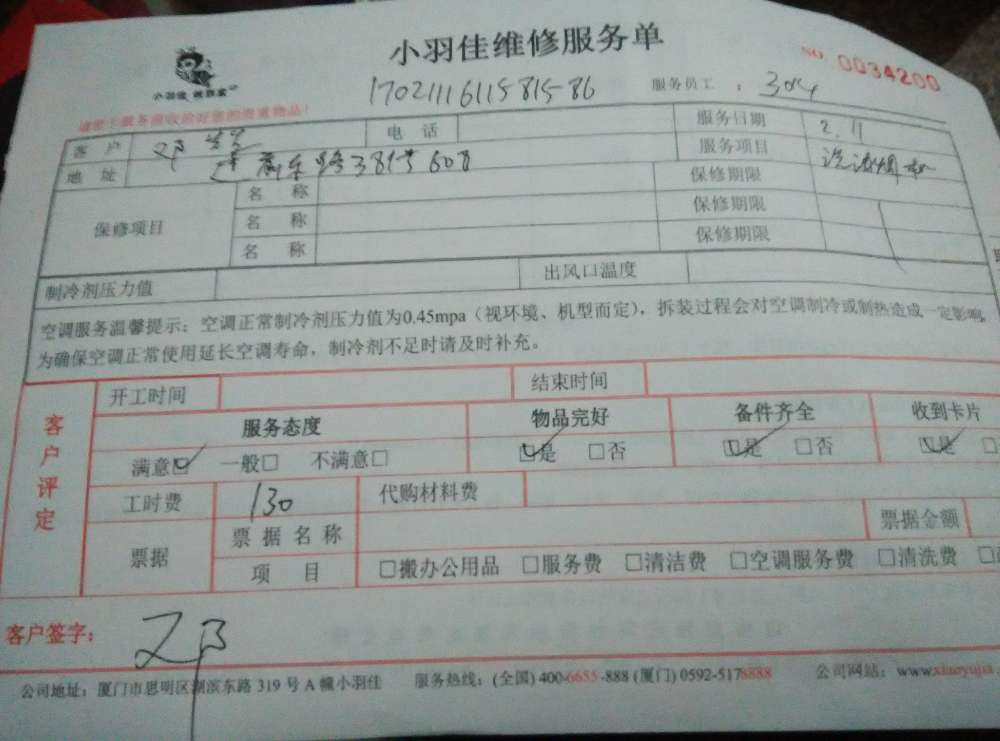 小羽佳维修服务单
NO 0034200
小羽佳 搬顾家
17021116115815-86
服务员工：304
客户 邓先生
电话
服务日期 2.11
地址 莲 路381号608
服务项目 洗油烟机
保修项目
名称 保修期限
名称 保修期限
名称 保修期限
制冷剂压力值
出风口温度
空调服务温馨提示：空调正常制冷剂压力值为0.45mpa（视环境、机型而定），拆装过程会对空调制冷或制热造成一定影响，
为确保空调正常使用延长空调寿命，制冷剂不足时请及时补充。
客户评定
开工时间
结束时间
服务态度 物品完好 备件齐全 收到卡片
满意☑ 一般□ 不满意□ ☑是 □否 ☑是 □否 ☑是 □
工时费 130 代购材料费
票据
票据名称 票据金额
项目 □搬办公用品 □服务费 □清洁费 □空调服务费 □清洗费
客户签字： 邓
公司地址：厦门市思明区湖滨东路 319 号 A 幢小羽佳 服务热线：(全国) 400-6655-888 (厦门) 0592-5178888 公司网站：www.xiaoyujia